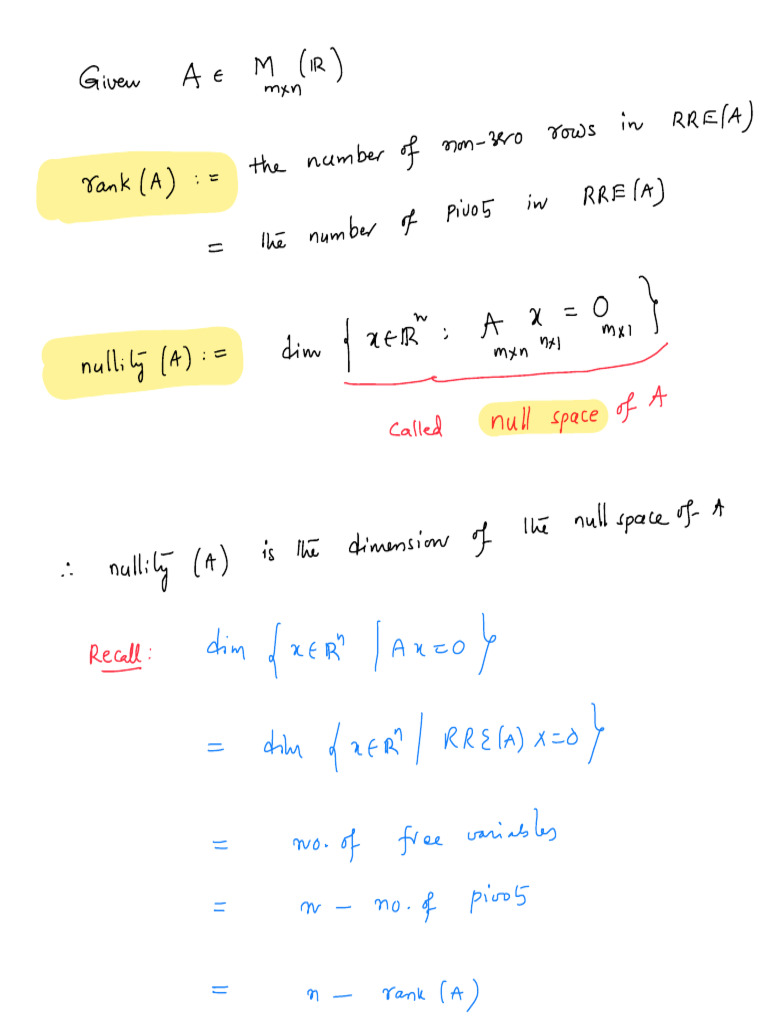 Given A ∈ M_{m×n} (ℝ)
rank (A) := the number of non-zero rows in RRE(A)
= the number of pivots in RRE(A)
nullity (A) := dim { x ∈ ℝⁿ : A_{m×n} x_{n×1} = 0_{m×1} }
called null space of A
∴ nullity (A) is the dimension of the null space of A
Recall: dim { x ∈ ℝⁿ | Ax = 0 }
= dim { x ∈ ℝⁿ | RRE(A) x = 0 }
= no. of free variables
= n – no. of pivots
= n – rank (A)